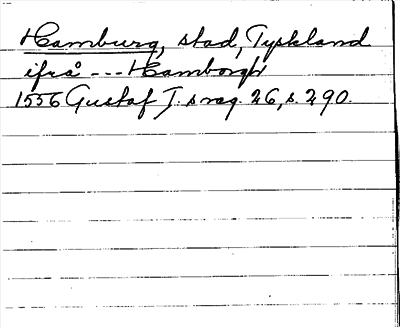 Hamburg, stad, Tyskland
ifrå --- Hamborgh
1556 Gustaf I. s reg. 26, s. 290.